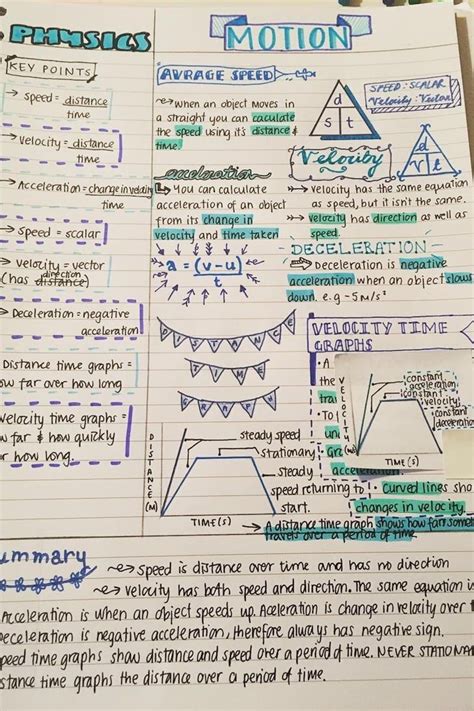 PHYSICS
MOTION
KEY POINTS
→ speed = distance
time
→ velocity = distance
time
→ Acceleration = change in velocity
time
→ speed = scalar
→ velocity = vector
(has direction distance)
→ Deceleration = negative
acceleration
Distance time graphs =
how far over how long
Velocity time graphs =
how far & how quickly
or how long.
AVRAGE SPEED
when an object moves in
a straight you can caculate
the speed using it's distance &
time.
d
s t
SPEED : SCALAR
Velocity : Vector
acceleration
You can calculate
acceleration of an object
from its change in
velocity and time taken
a = (v-u)
t
Velocity
d
v t
velocity has the same equation
as speed, but it isn't the same.
velocity has direction as well as
speed.
DECELERATION
Deceleration is negative
acceleration when an object slows
down. e.g -5m/s²
DISTANCE
TIME
GRAPH
DISTANCE (M)
steady speed
stationary
steady
speed returning to
start.
TIME(S)
VELOCITY TIME
GRAPHS
• A
the
tra
• To
un
Gra
acceleration.
VELOCITY (M)
constant
acceleration
constant
velocity
constant
deceleration
TIME(S)
• Curved lines sho
changes in velocity.
A distance time graph shows how far something
travels over a period of time.
summary
speed is distance over time and has no direction
velocity has both speed and direction. The same equation
Acceleration is when an object speeds up. Aceleration is change in velocity over t
Deceleration is negative acceleration, therefore always has negative sign.
speed time graphs show distance and speed over a period of time. NEVER STATIONA
distance time graphs the distance over a period of time.